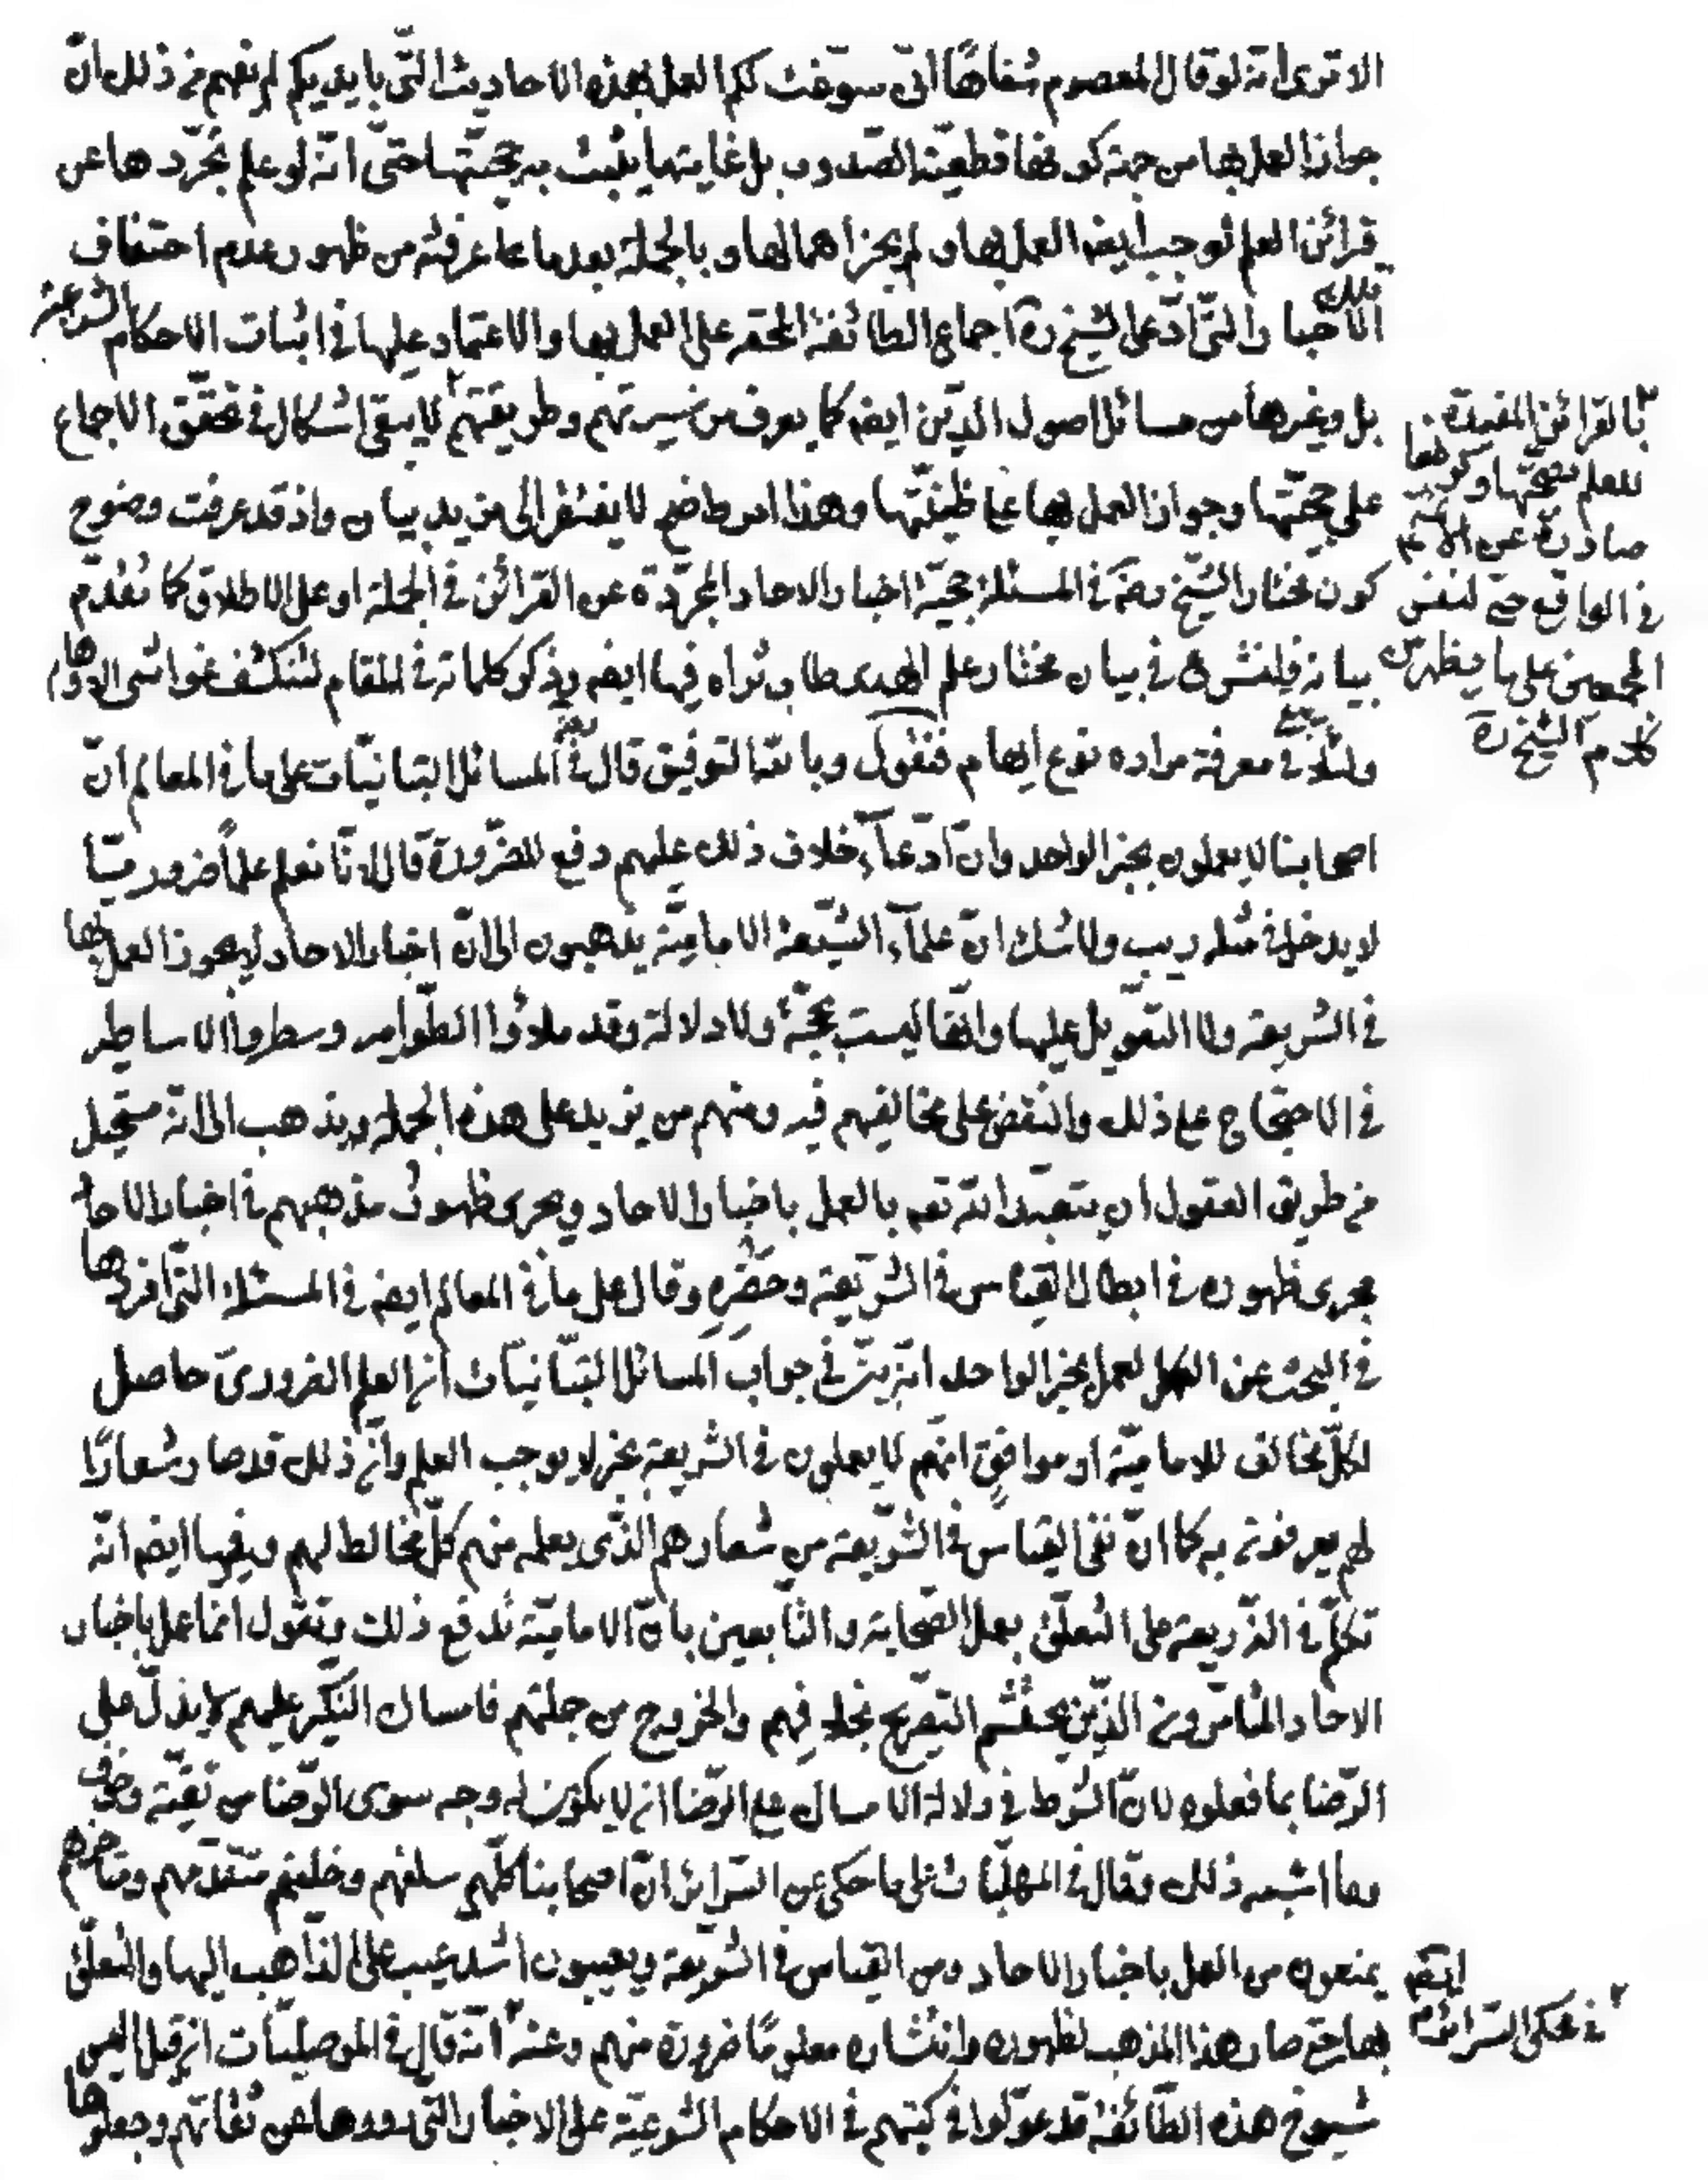 الا ترى انه لو قال المعصوم شفاها انى سوغت لكم العمل بهذه الاحاديث التى بايديكم لم نفهم من ذلك ان
جواز العمل بها من جهة كونها قطعية الصدور بل غايتها يثبت به حجيتها حتى انه لو علم تجردها عن
قرائن العلم لوجب ايضه العمل بها ولم يجز اهمالها وبالجملة بعد ما عرفته من ظهور عدم احتفاف
تلك الاخبار التى ادعى الشيخ ره اجماع الطائفة المحقه على العمل بها والاعتماد عليها فى اثبات الاحكام الشرعية
بل وغيرها من مسائل اصول الدين ايضه كما يعرف من سيرتهم وطريقتهم ٢ لا يبقى اشكال فى تحقق الاجماع
على حجيتها وجواز العمل بها على ظنيتها وهذا امر واضح لا يفتقر الى مزيد بيان واذ قد عرفت وضوح
كون مختار الشيخ فى المسئلة حجية اخبار الاحاد المجردة عن القرائن فى الجملة او على الاطلاق كما تقدم
بيانه فلنشرع فى بيان مختار علم الهدى طاب ثراه فيها ايضه ويذكر كلماته فى المقام لتنكشف غواشى الاوهام
ولئلا يبقى فى معرفة مراده نوع ابهام فنقول وبالله التوفيق قال فى المسائل التبانيات على ما فى المعالم ان
اصحابنا لا يعملون بخبر الواحد وان ادعآء خلاف ذلك عليهم دفع للضرورة قال لانا نعلم علما ضروريا
لا يدخل فى مثله ريب ولا شك ان علمآء الشيعة الامامية يذهبون الى ان اخبار الاحاد لا يجوز العمل بها
فى الشريعة ولا التعويل عليها وانها ليست بحجة ولا دلالة وقد ملاؤا الطوامير وسطروا الاساطير
فى الاحتجاج على ذلك والنقض على مخالفيهم فيه ومنهم من يزيد على هذه الجملة ويذهب الى انه مستحيل
من طريق العقول ان يتعبد الله تعه بالعمل باخبار الاحاد ويجرى ظهور مذهبهم فى اخبار الاحاد
مجرى ظهوره فى ابطال القياس فى الشريعة وحظره وقال على ما فى المعالم ايضه فى المسئلة التى افردها
فى البحث عن العمل بخبر الواحد انه بين فى جواب المسائل التبانيات ان العلم الضرورى حاصل
لكل مخالف للامامية او موافق انهم لا يعملون فى الشريعة بخبر لا يوجب العلم وان ذلك قد صار شعارا
لهم يعرفون به كما ان نفى القياس فى الشريعة من شعارهم الذى يعلمه منهم كل مخالط لهم وفيها ايضه انه
تكلم فى الذريعة على التعلق بعمل الصحابة والتابعين بان الامامية تدفع ذلك وتقول انما عمل باخبار
الاحاد المتامرون الذين يحتشم التصريح بخلافهم والخروج من جملتهم فامساك النكير عليهم لا يدل على
الرضا بما فعلوه لان الشرط فى دلالة الامساك على الرضا ان لا يكون له وجه سوى الرضا من تقية وخوف
وما اشبه ذلك وقال فى على ما حكى عن السرائر ان اصحابنا كلهم سلفهم وخلفهم متقدمهم ومتاخرهم
يمنعون من العمل باخبار الاحاد ومن القياس فى الشريعة ويعيبون اشد عيب على الذاهب اليها والمتعلق
بها حتى صار هذا المذهب لظهوره وانتشاره معلوما ضرورة منهم وعنه ٢ انه قال فى الموصليات ان قيل اليس
شيوخ هذه الطائفة قد عولوا فى كتبهم فى الاحكام الشرعية على الاخبار التى رووها عن ثقاتهم وجعلوها
٢ بالقرائن المفيدة
للعلم بصحتها وكونها
صادرة عن الائمه
فى الواقع حتى لنفس
المجمعين على ما يظهر من
كلام الشيخ ره
انتهى
٢ فى محكى السرائر